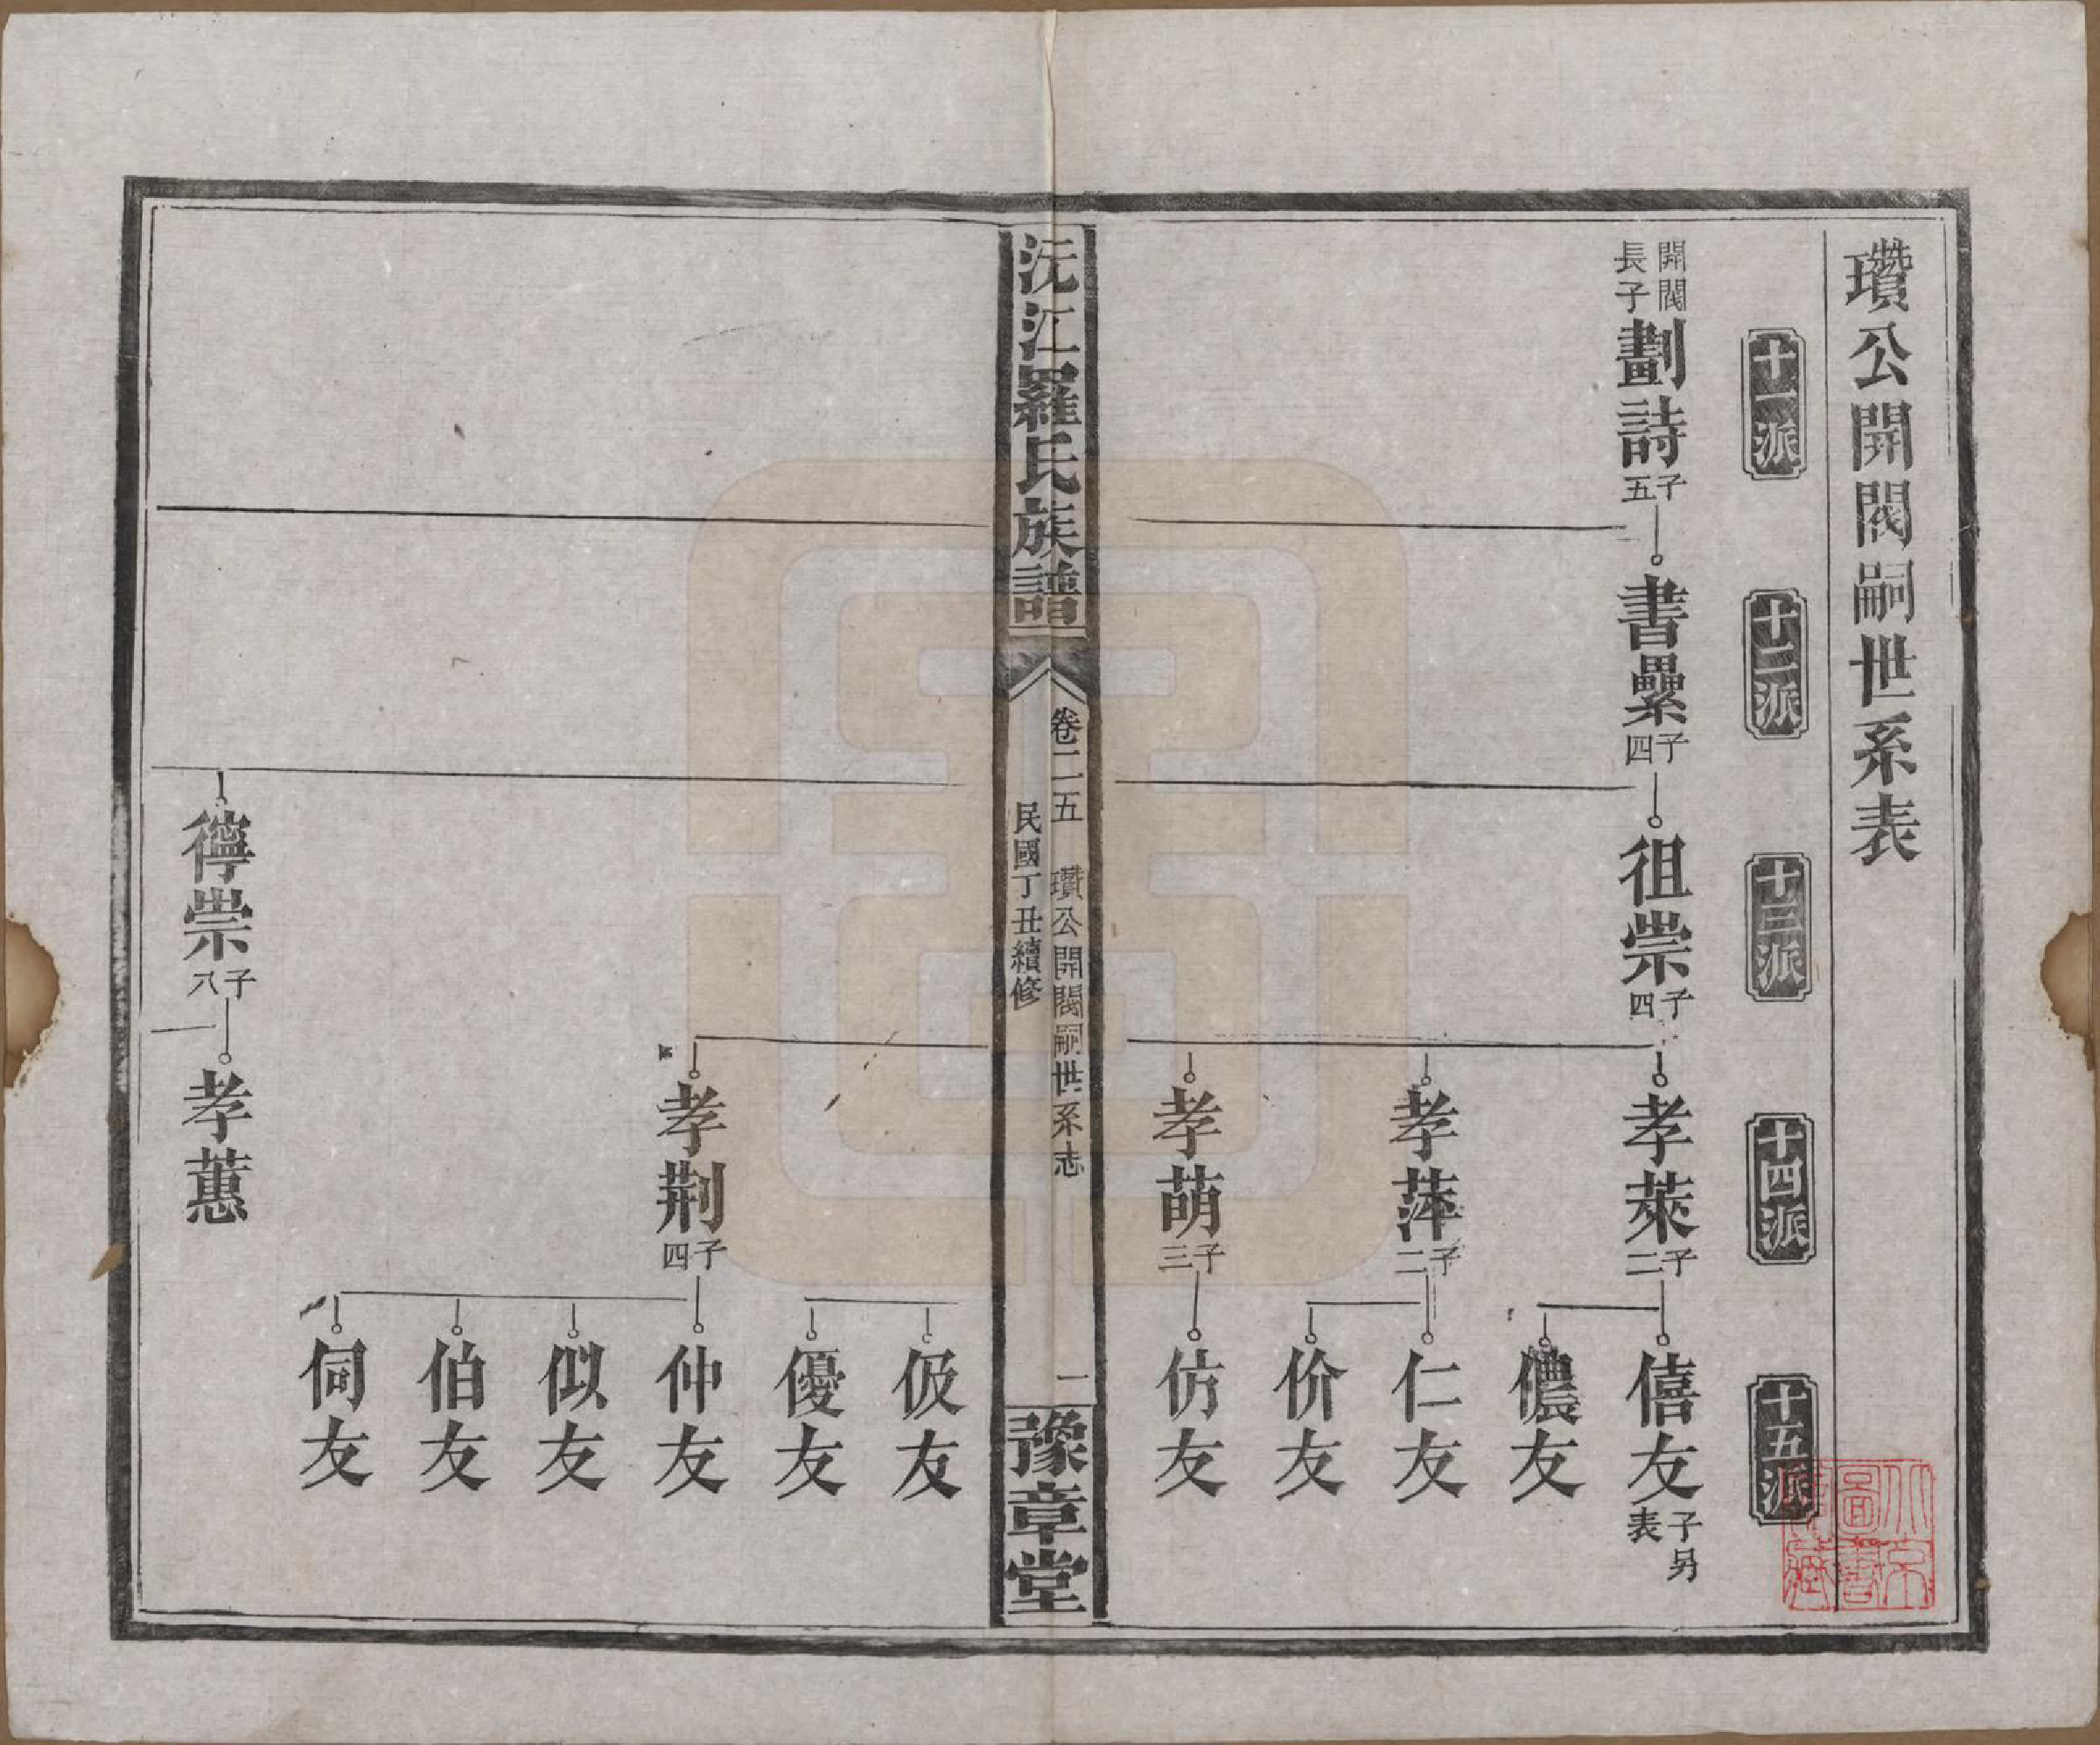 瓚公開閥嗣世系表
十一派
十二派
十三派
十四派
十五派
開閥長子
劃詩 子五
書纍 子四
徂崇 子四
孝萊 子二
僖友 子另表
儂友
孝萍 子二
仁友
价友
孝萌 子三
仿友
沅江羅氏族譜
卷二五 瓚公開閥嗣世系志
民國丁丑續修
一
豫章堂
伋友
優友
孝荆 子四
仲友
似友
伯友
伺友
崇 子八
孝蕙
北京圖書館藏